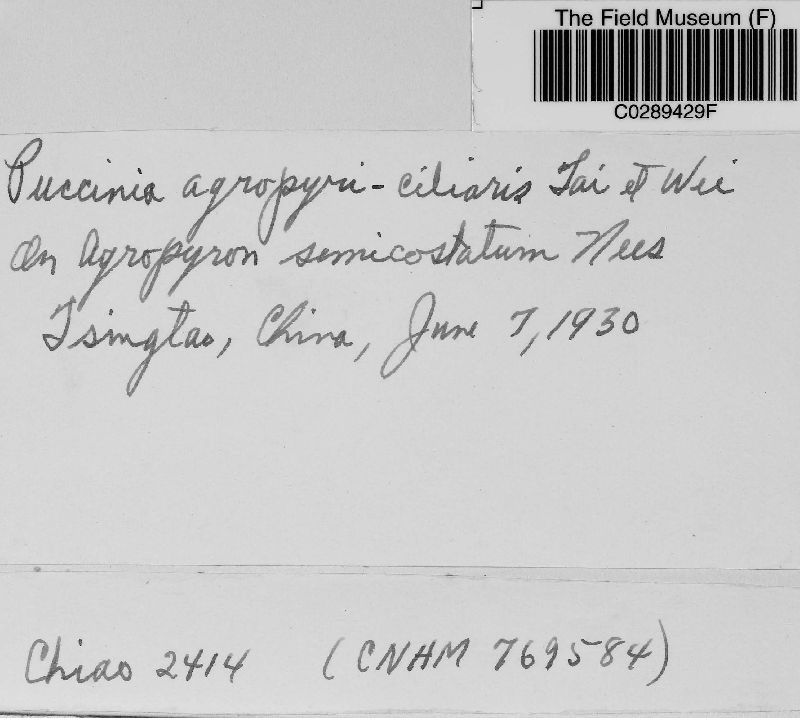 The Field Museum (F)
C0289429F
Puccinia agropyri-ciliaris Tai et Wei
On Agropyron semicostatum Nees
Tsingtao, China, June 7, 1930
Chiao 2414 (CNHM 769584)